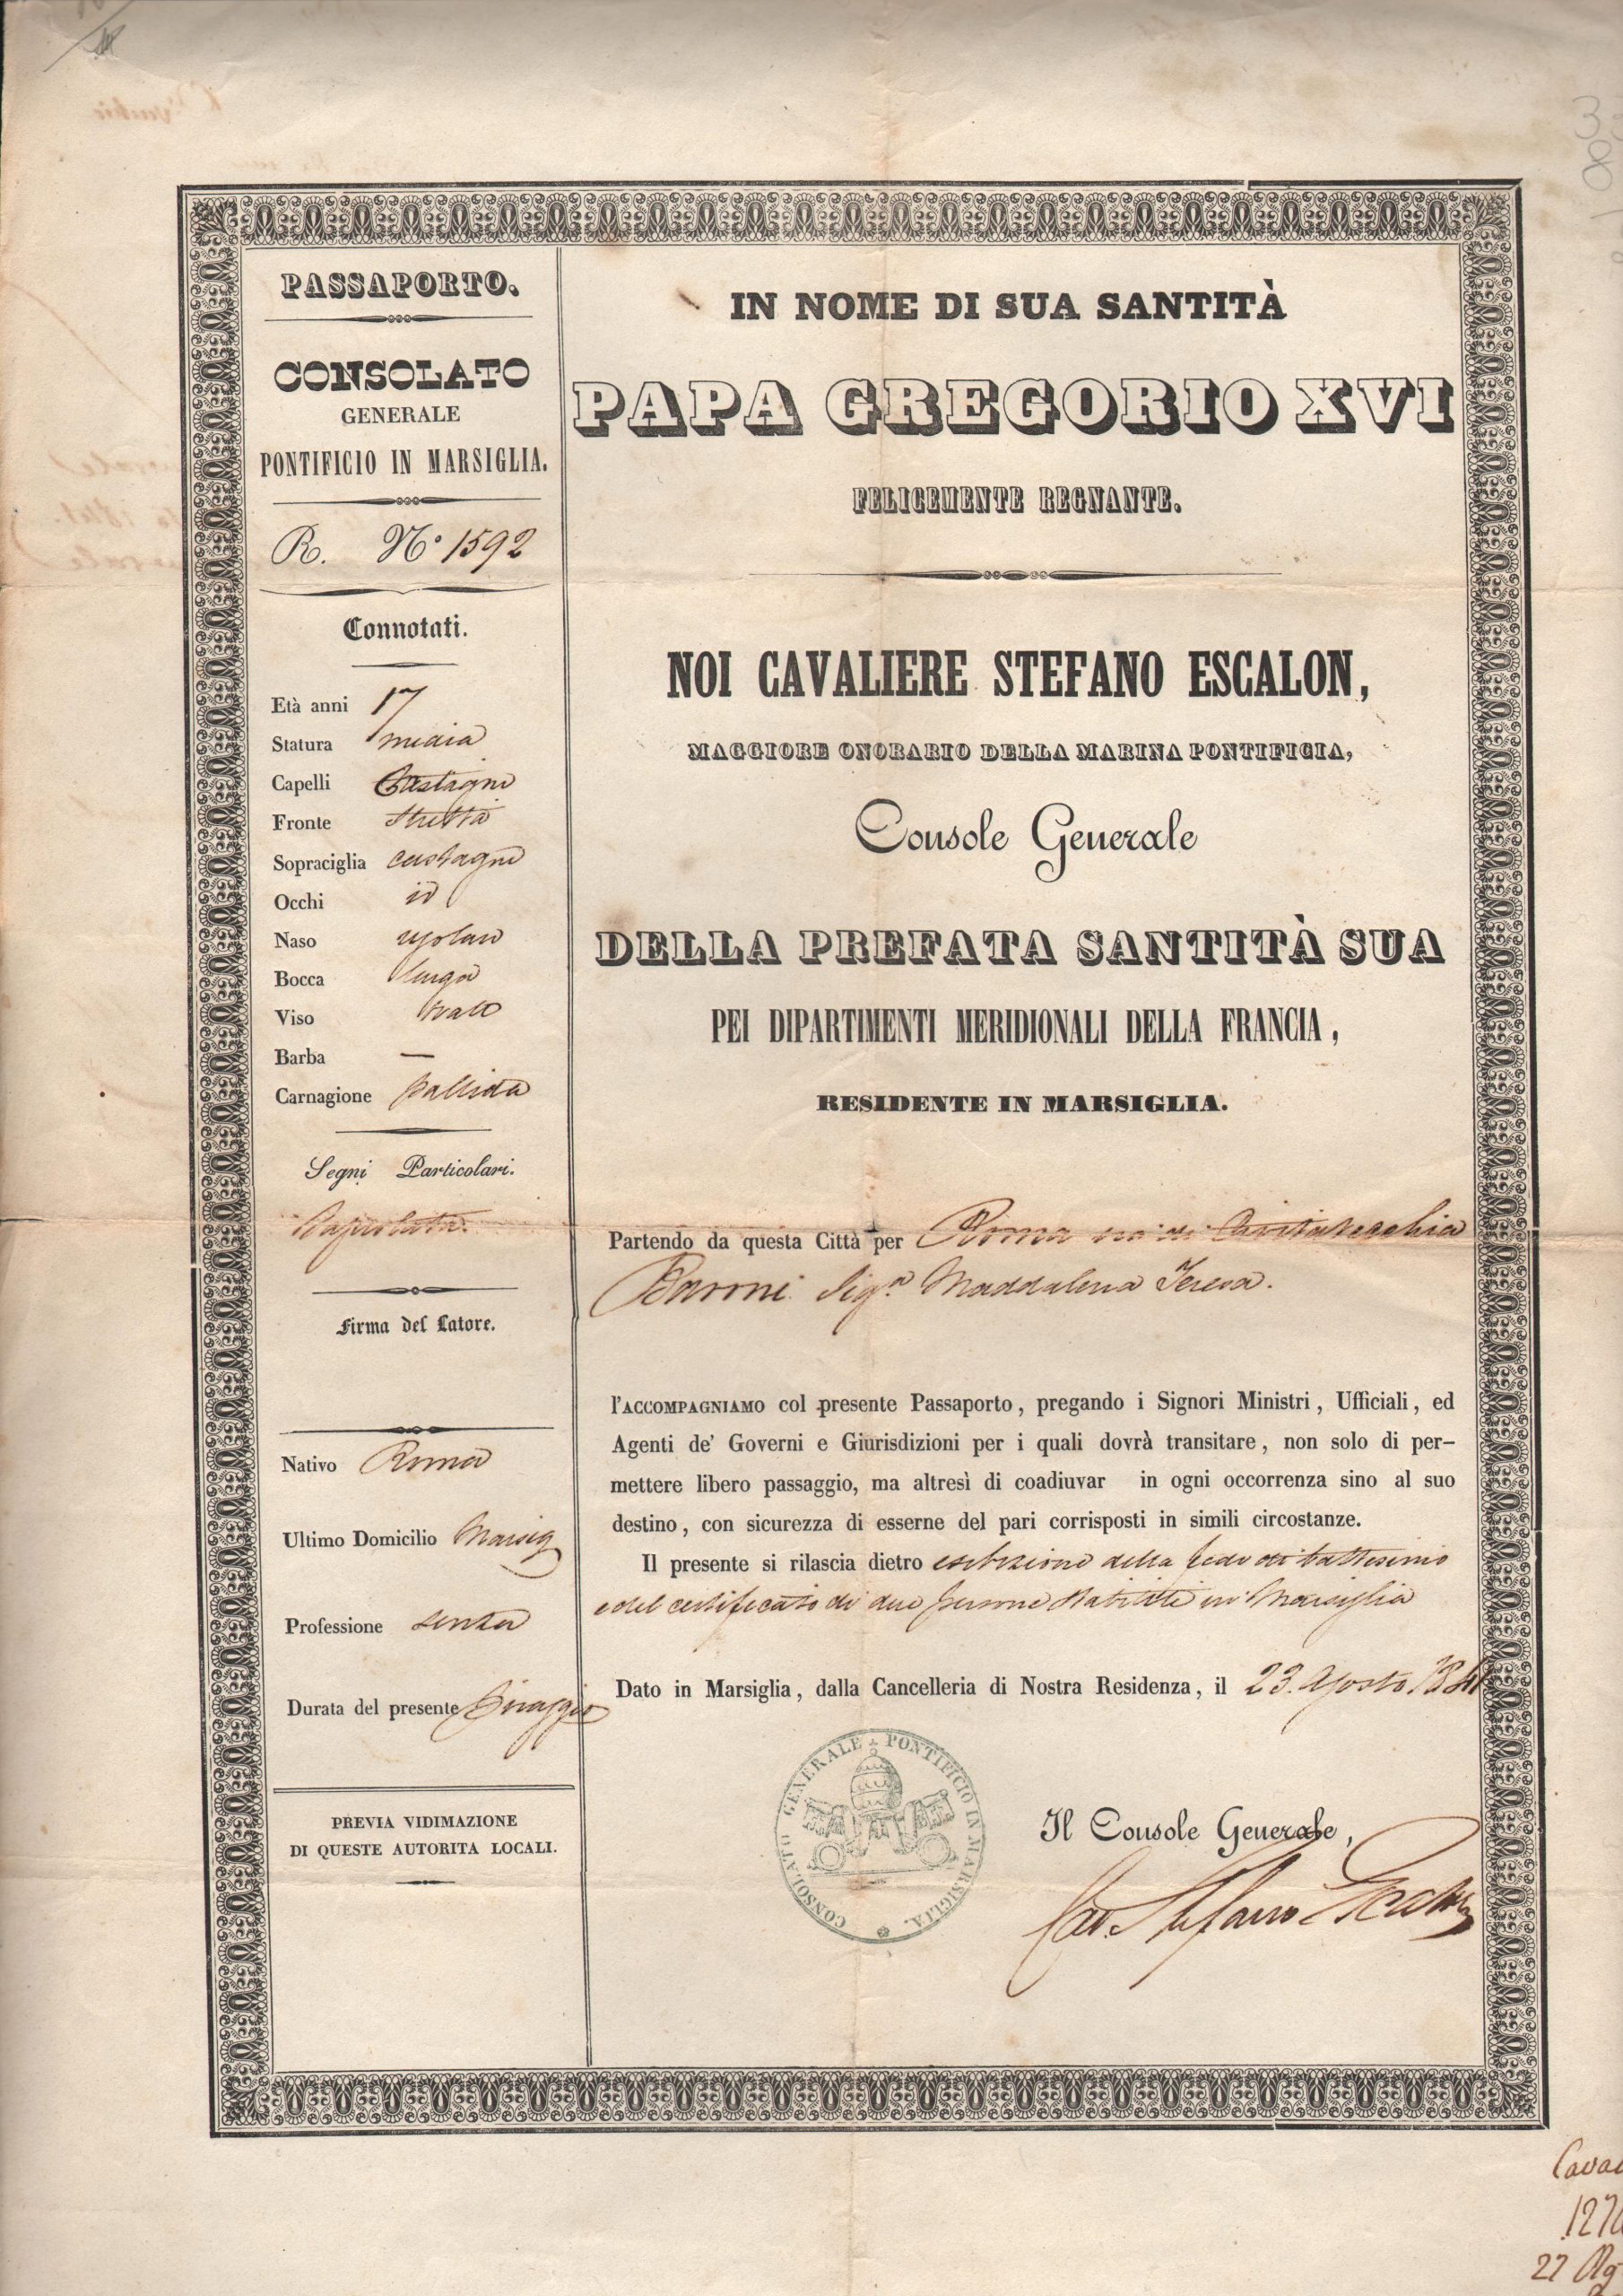 PASSAPORTO.
CONSOLATO
GENERALE
PONTIFICIO IN MARSIGLIA.
R. Nº 1592
Connotati.
Età anni 17
Statura media
Capelli Castagni
Fronte Stretta
Sopraciglia castagni
Occhi id
Naso
Bocca larga
Viso ovale
Barba —
Carnagione pallida
Segni Particolari.
Firma del Latore.
Nativo Roma
Ultimo Domicilio Marsig
Professione senza
Durata del presente
PREVIA VIDIMAZIONE
DI QUESTE AUTORITA LOCALI.
IN NOME DI SUA SANTITÀ
PAPA GREGORIO XVI
FELICEMENTE REGNANTE.
NOI CAVALIERE STEFANO ESCALON,
MAGGIORE ONORARIO DELLA MARINA PONTIFICIA,
Console Generale
DELLA PREFATA SANTITÀ SUA
PEI DIPARTIMENTI MERIDIONALI DELLA FRANCIA,
RESIDENTE IN MARSIGLIA.
Partendo da questa Città per Roma via di Civitavecchia
Baroni Sig.ª Maddalena Teresa.
l'ACCOMPAGNIAMO col presente Passaporto, pregando i Signori Ministri, Ufficiali, ed
Agenti de' Governi e Giurisdizioni per i quali dovrà transitare, non solo di per-
mettere libero passaggio, ma altresì di coadiuvar in ogni occorrenza sino al suo
destino, con sicurezza di esserne del pari corrisposti in simili circostanze.
Il presente si rilascia dietro esibizione della fede di battesimo
e del certificato di due persone stabilite in Marsiglia
Dato in Marsiglia, dalla Cancelleria di Nostra Residenza, il 23. Agosto 1841
CONSOLATO GENERALE PONTIFICIO IN MARSIGLIA.
Il Console Generale,
Cav. Stefano Escalon
22 Ag